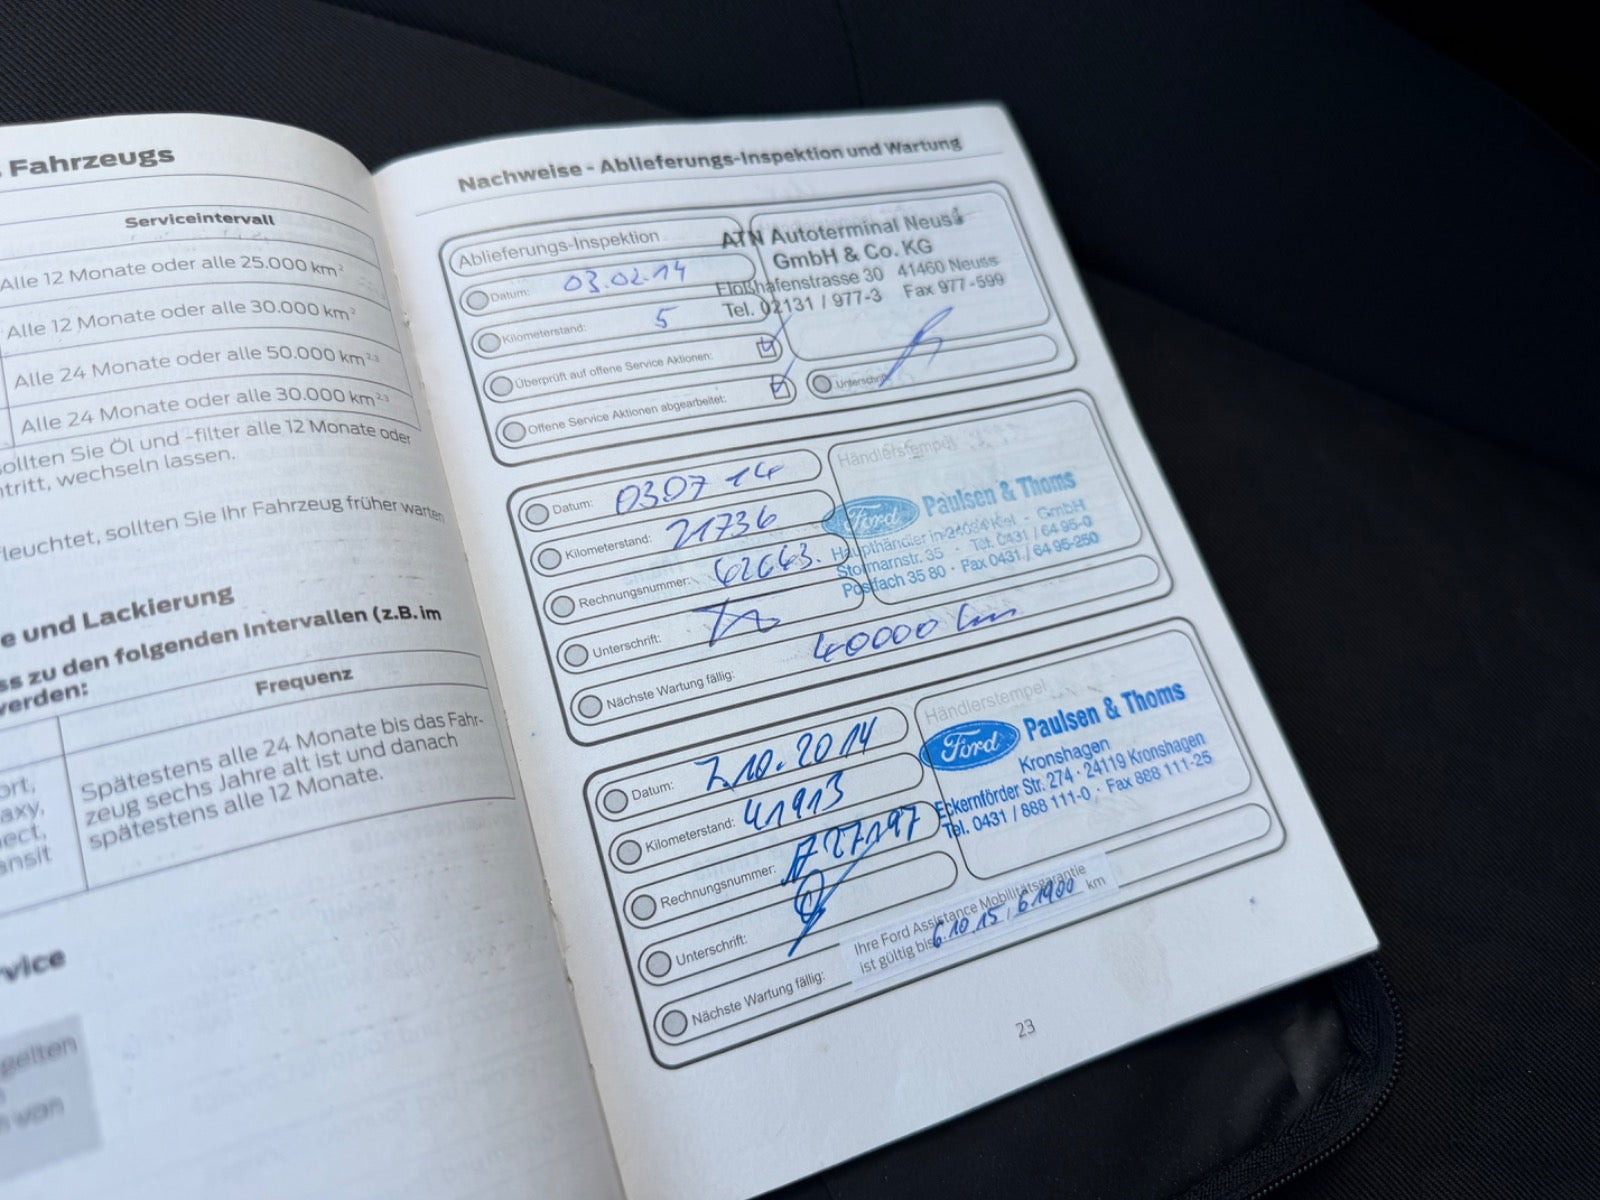 Fahrzeugs
Serviceintervall
Alle 12 Monate oder alle 25.000 km²
Alle 12 Monate oder alle 30.000 km²
Alle 24 Monate oder alle 50.000 km²,³
Alle 24 Monate oder alle 30.000 km²,³
sollten Sie Öl und -filter alle 12 Monate oder
ntritt, wechseln lassen.
fleuchtet, sollten Sie Ihr Fahrzeug früher warten
e und Lackierung
ss zu den folgenden Intervallen (z.B. im
werden:
Frequenz
ort,
axy,
nect,
ansit
Spätestens alle 24 Monate bis das Fahr-
zeug sechs Jahre alt ist und danach
spätestens alle 12 Monate.
rvice
gelten
n von
Nachweise - Ablieferungs-Inspektion und Wartung
Ablieferungs-Inspektion
Datum: 03.02.14
Kilometerstand: 5
Überprüft auf offene Service Aktionen:
Offene Service Aktionen abgearbeitet:
ATN Autoterminal Neuss
GmbH & Co. KG
Floßhafenstrasse 30 41460 Neuss
Tel. 02131 / 977-3 Fax 977-599
Unterschrift:
Datum: 03 07 14
Kilometerstand: 21736
Rechnungsnummer:
Unterschrift:
Nächste Wartung fällig: 40000 km
Händlerstempel
Ford Paulsen & Thoms
Haupthändler in Kiel - GmbH
Stormarnstr. 35 · Tel. 0431 / 64 95-0
Postfach 35 80 · Fax 0431 / 64 95-250
Datum: 7.10.2014
Kilometerstand: 41913
Rechnungsnummer:
Unterschrift:
Nächste Wartung fällig:
Händlerstempel
Ford Paulsen & Thoms
Kronshagen
Eckernförder Str. 274 · 24119 Kronshagen
Tel. 0431 / 888 111-0 · Fax 888 111-25
Ihre Ford Assistance Mobilitätsgarantie
ist gültig bis 6.10.15 / 61900 km
23